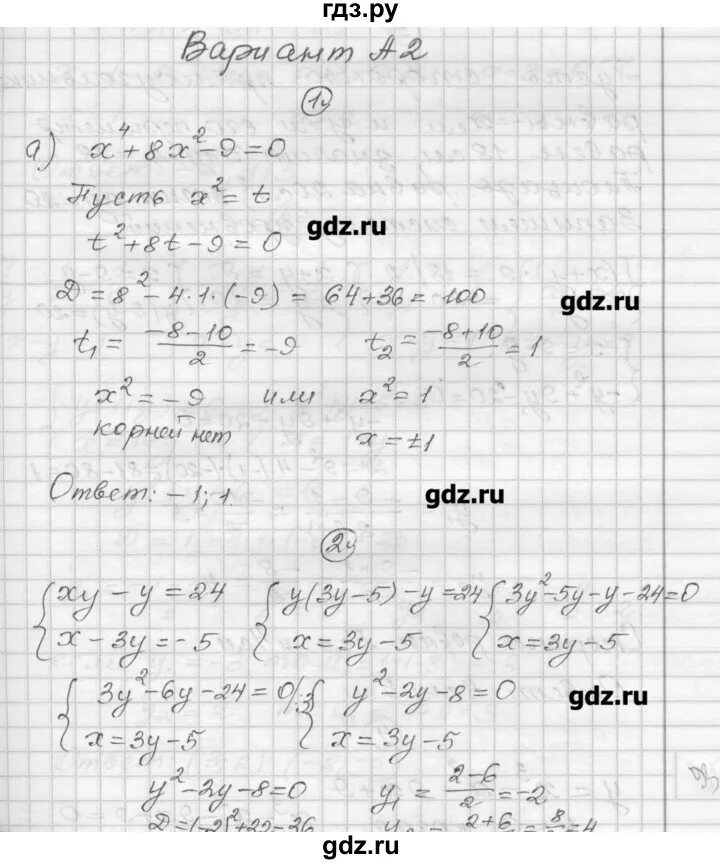 гдз.ру
Вариант А2
1у
а) x⁴+8x²-9=0
Пусть x²=t
t²+8t-9=0
gdz.ru
D=8²-4·1·(-9)=64+36=100
gdz.ru
t₁=(-8-10)/2=-9 t₂=(-8+10)/2=1
x²=-9 или x²=1
корней нет x=±1
Ответ: -1; 1.
gdz.ru
2у
{xy-y=24 {y(3y-5)-y=24 {3y²-5y-y-24=0
{x-3y=-5 {x=3y-5 {x=3y-5
gdz.ru
{3y²-6y-24=0/:3 {y²-2y-8=0
{x=3y-5 {x=3y-5
y²-2y-8=0 y₁=(2-6)/2=-2
D=(-2)²+32=36 y₂=(2+6)/2=8/2=4
gdz.ru